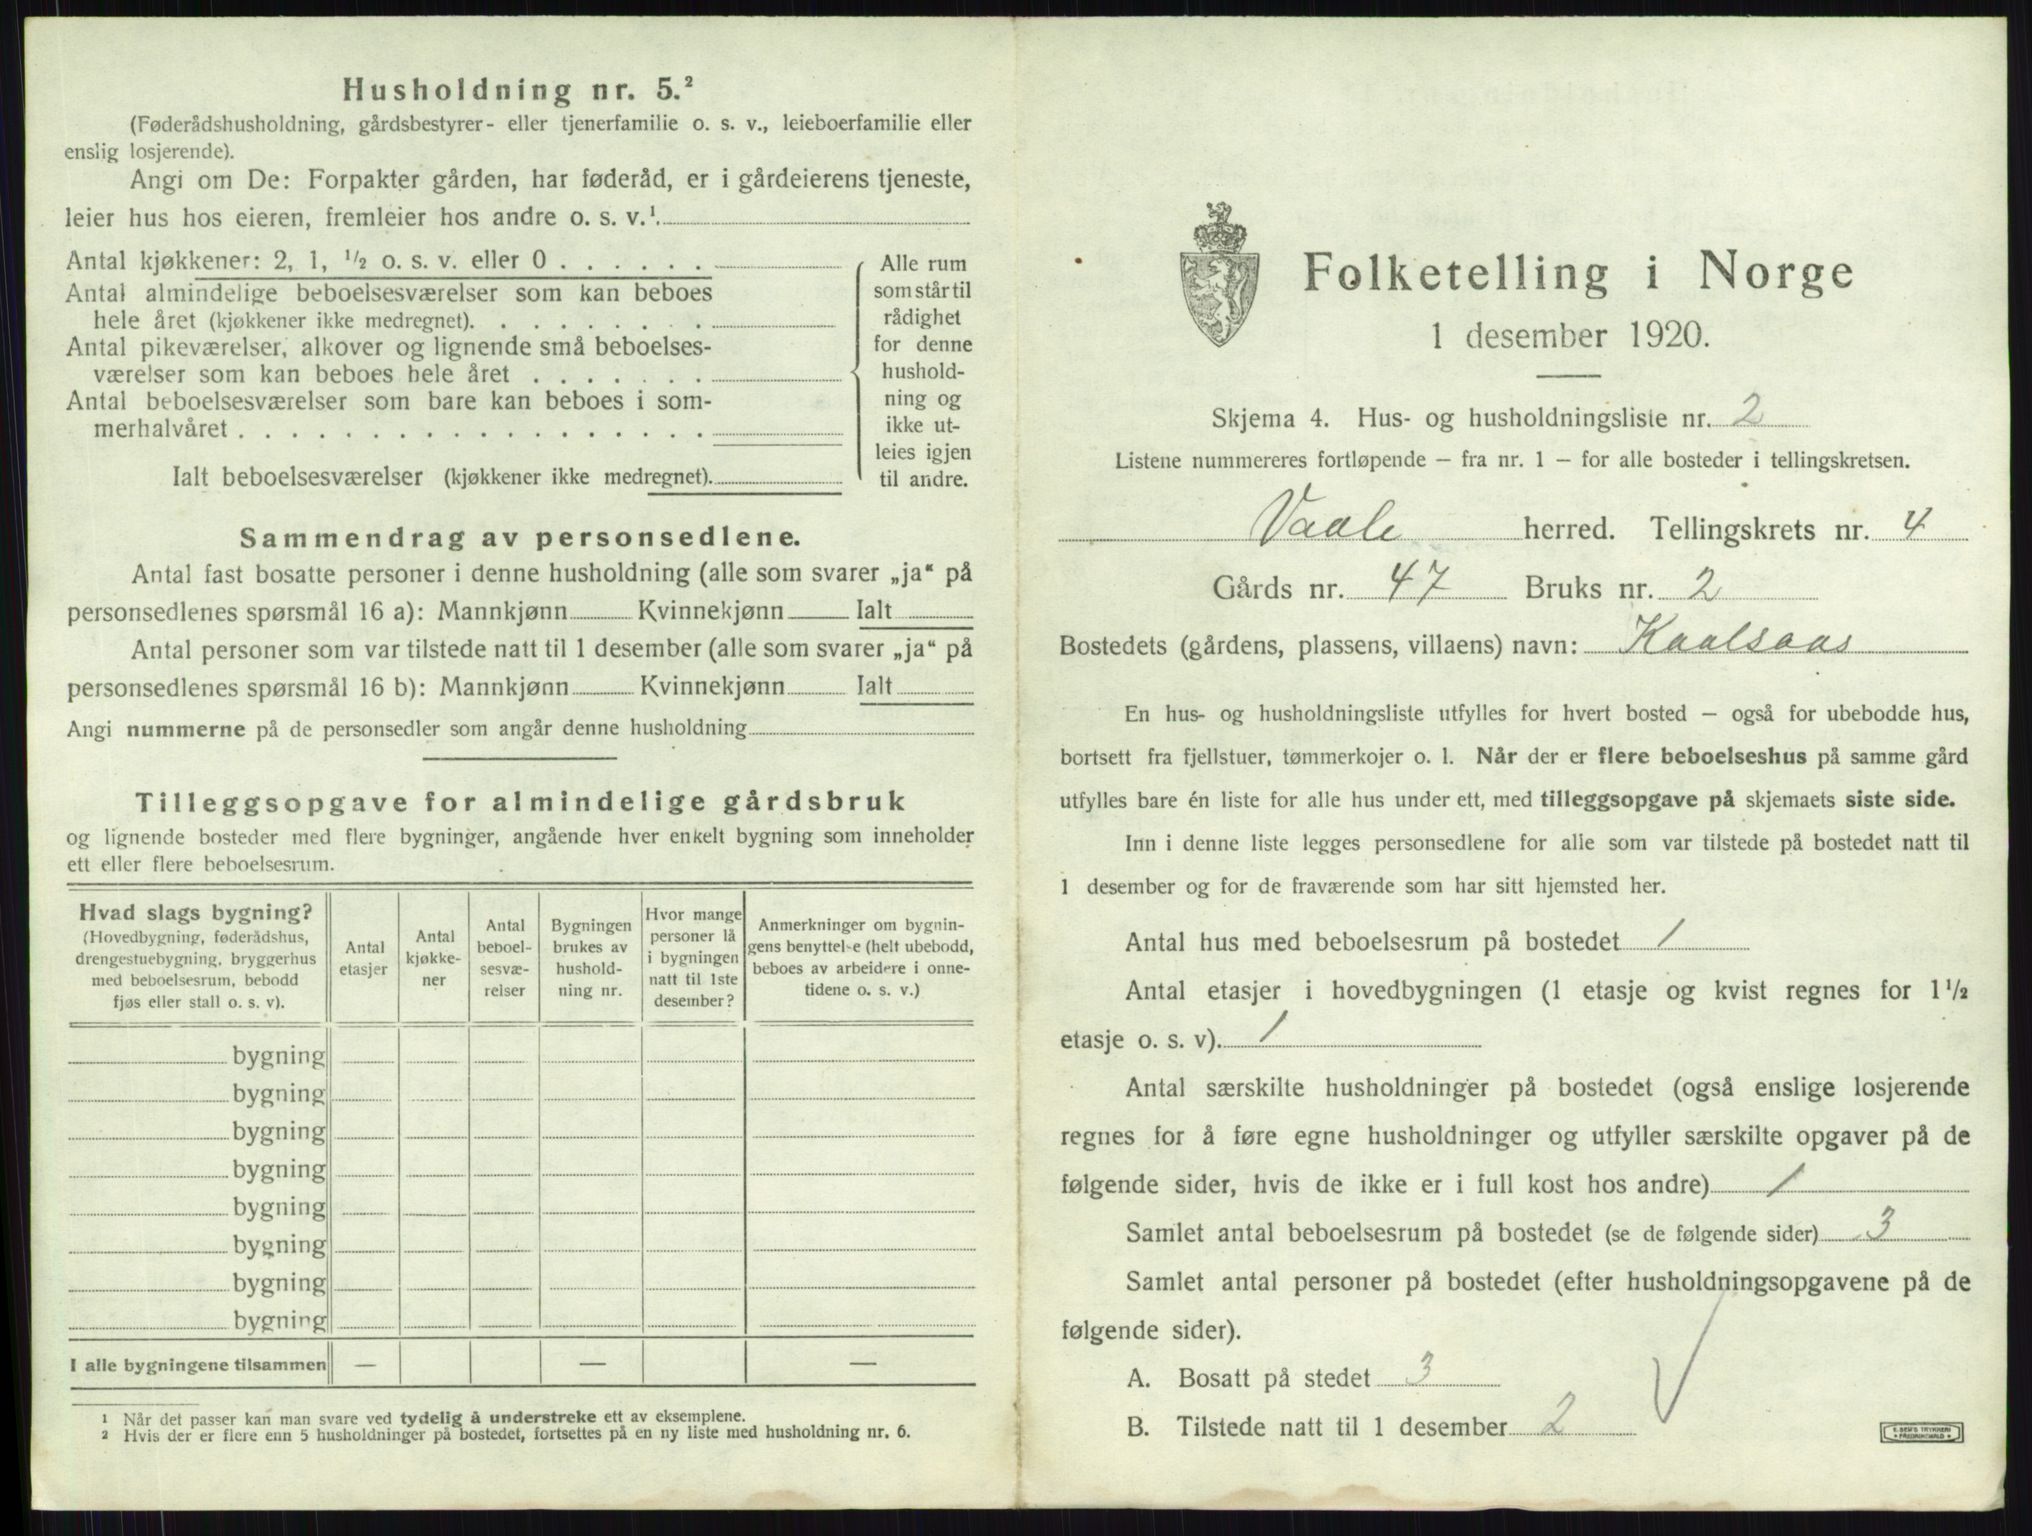 Husholdning nr. 5.²
(Føderådshusholdning, gårdsbestyrer- eller tjenerfamilie o. s. v., leieboerfamilie eller
enslig losjerende).
Angi om De: Forpakter gården, har føderåd, er i gårdeierens tjeneste,
leier hus hos eieren, fremleier hos andre o. s. v.¹
Antal kjøkkener: 2, 1, ½ o. s. v. eller 0
Antal almindelige beboelsesværelser som kan beboes
hele året (kjøkkener ikke medregnet).
Antal pikeværelser, alkover og lignende små beboelses-
værelser som kan beboes hele året
Antal beboelsesværelser som bare kan beboes i som-
merhalvåret
Ialt beboelsesværelser (kjøkkener ikke medregnet).
Alle rum
som står til
rådighet
for denne
hushold-
ning og
ikke ut-
leies igjen
til andre.
Sammendrag av personsedlene.
Antal fast bosatte personer i denne husholdning (alle som svarer „ja“ på
personsedlenes spørsmål 16 a): Mannkjønn Kvinnekjønn Ialt
Antal personer som var tilstede natt til 1 desember (alle som svarer „ja“ på
personsedlenes spørsmål 16 b): Mannkjønn Kvinnekjønn Ialt
Angi nummerne på de personsedler som angår denne husholdning
Tilleggsopgave for almindelige gårdsbruk
og lignende bosteder med flere bygninger, angående hver enkelt bygning som inneholder
ett eller flere beboelsesrum.
Hvad slags bygning?
(Hovedbygning, føderådshus,
drengestuebygning, bryggerhus
med beboelsesrum, bebodd
fjøs eller stall o. s. v).
Antal
etasjer
Antal
kjøkke-
ner
Antal
beboel-
sesvæ-
relser
Bygningen
brukes av
hushold-
ning nr.
Hvor mange
personer lå
i bygningen
natt til 1ste
desember?
Anmerkninger om bygnin-
gens benyttelse (helt ubebodd,
beboes av arbeidere i onne-
tidene o. s. v.)
bygning
bygning
bygning
bygning
bygning
bygning
bygning
bygning
I alle bygningene tilsammen — — —
1 Når det passer kan man svare ved tydelig å understreke ett av eksemplene.
2 Hvis der er flere enn 5 husholdninger på bostedet, fortsettes på en ny liste med husholdning nr. 6.
Folketelling i Norge
1 desember 1920.
Skjema 4. Hus- og husholdningsliste nr. 2
Listene nummereres fortløpende – fra nr. 1 – for alle bosteder i tellingskretsen.
Vaale herred. Tellingskrets nr. 4
Gårds nr. 47 Bruks nr. 2
Bostedets (gårdens, plassens, villaens) navn: Kaalsaas
En hus- og husholdningsliste utfylles for hvert bosted – også for ubebodde hus,
bortsett fra fjellstuer, tømmerkojer o. l. Når der er flere beboelseshus på samme gård
utfylles bare én liste for alle hus under ett, med tilleggsopgave på skjemaets siste side.
Inn i denne liste legges personsedlene for alle som var tilstede på bostedet natt til
1 desember og for de fraværende som har sitt hjemsted her.
Antal hus med beboelsesrum på bostedet 1
Antal etasjer i hovedbygningen (1 etasje og kvist regnes for 1½
etasje o. s. v). 1
Antal særskilte husholdninger på bostedet (også enslige losjerende
regnes for å føre egne husholdninger og utfyller særskilte opgaver på de
følgende sider, hvis de ikke er i full kost hos andre) 1
Samlet antal beboelsesrum på bostedet (se de følgende sider) 3
Samlet antal personer på bostedet (efter husholdningsopgavene på de
følgende sider).
A. Bosatt på stedet 3
B. Tilstede natt til 1 desember 2
E. SEM'S TRYKKERI
FREDRIKSHALD